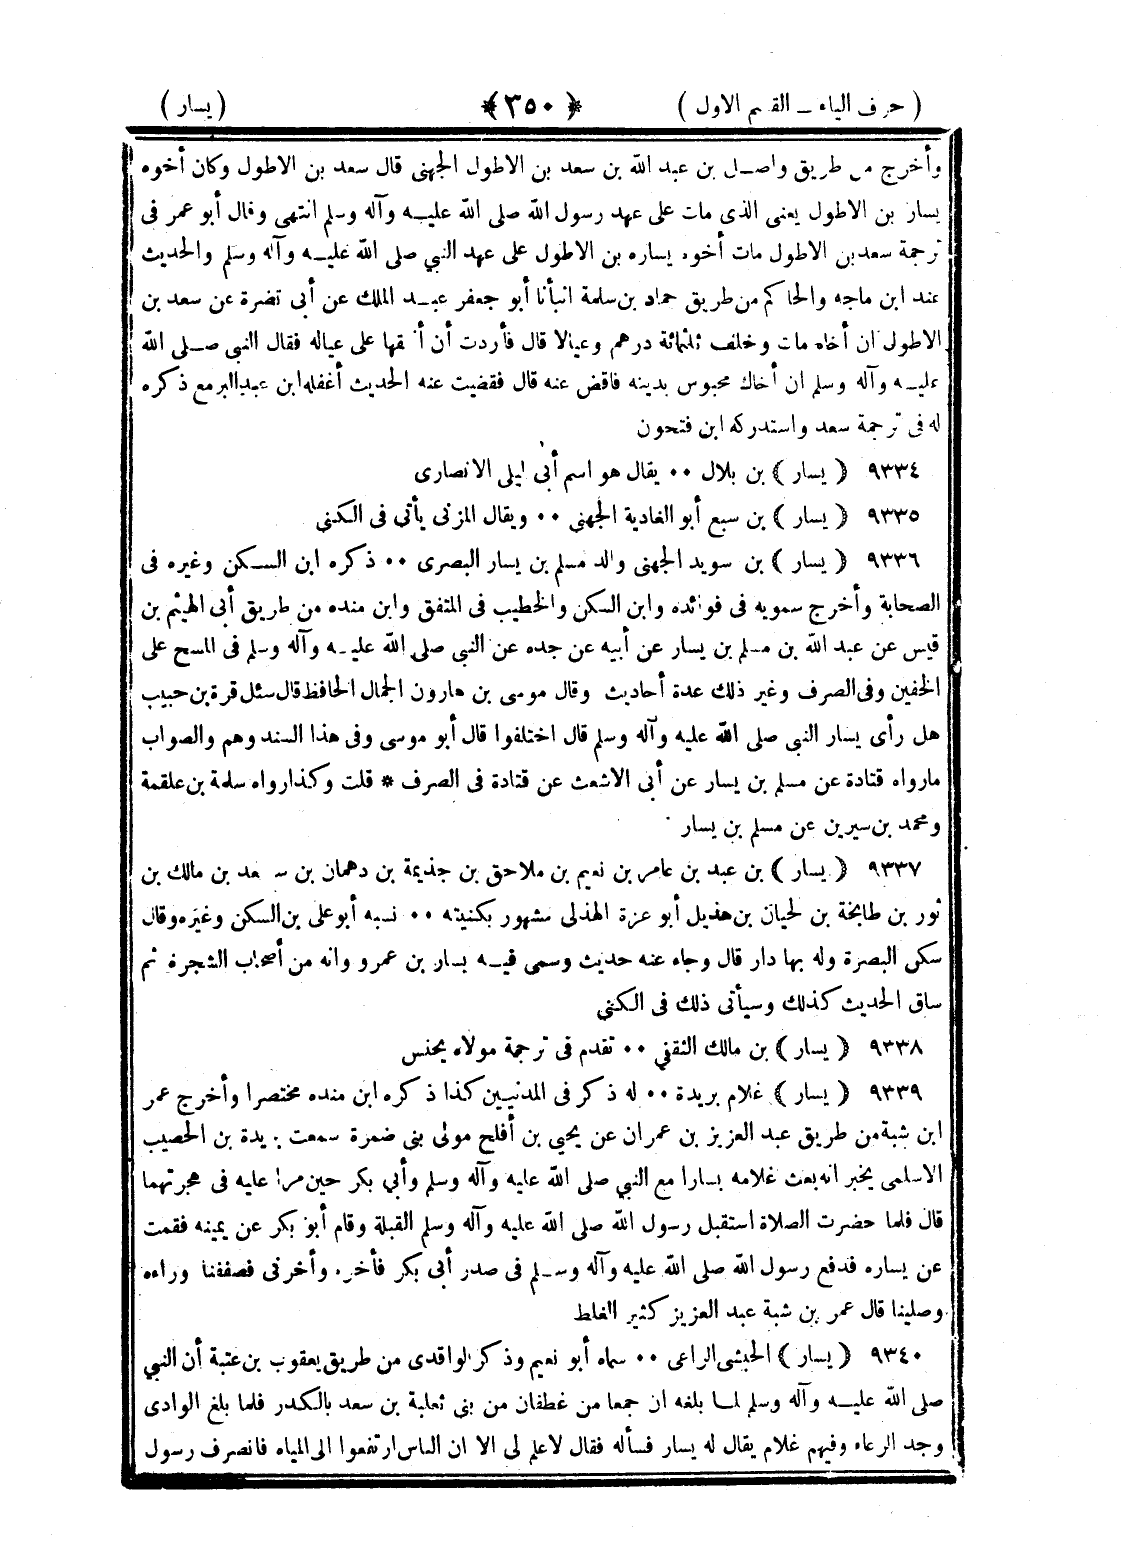 ( حرف الياء ــ القسم الاول ) ﴿ ٣٥٠ ﴾ ( يسار )
وأخرج من طريق واصل بن عبد الله بن سعد بن الاطول الجهنى قال سعد بن الاطول وكان أخوه
يسار بن الاطول يعنى الذى مات على عهد رسول الله صلى الله عليه وآله وسلم انتهى وقال أبو عمر فى
ترجمة سعد بن الاطول مات أخوه يساره بن الاطول على عهد النبي صلى الله عليه وآله وسلم والحديث
عند ابن ماجه والحاكم من طريق حماد بن سلمة انبأنا أبو جعفر عبد الملك عن أبى نضرة عن سعد بن
الاطول ان أخاه مات وخلف ثلثمائة درهم وعيالا قال فأردت أن أنفقها على عياله فقال النبي صلى الله
عليه وآله وسلم ان أخاك محبوس بدينه فاقض عنه قال فقضيت عنه الحديث أغفله ابن عبد البر مع ذكره
له فى ترجمة سعد واستدركه ابن فتحون
٩٣٣٤ ( يسار ) بن بلال ٠٠ يقال هو اسم أبى ليلى الانصارى
٩٣٣٥ ( يسار ) بن سبع أبو الغادية الجهنى ٠٠ ويقال المزنى يأتى فى الكنى
٩٣٣٦ ( يسار ) بن سويد الجهنى والد مسلم بن يسار البصرى ٠٠ ذكره ابن السكن وغيره فى
الصحابة وأخرج سمويه فى فوائده وابن السكن والخطيب فى المتفق وابن منده من طريق أبى الهيثم بن
قيس عن عبد الله بن مسلم بن يسار عن أبيه عن جده عن النبي صلى الله عليه وآله وسلم فى المسح على
الخفين وفى الصرف وغير ذلك عدة أحاديث وقال موسى بن هارون الجمال الحافظ قال سئل قرة بن حبيب
هل رأى يسار النبي صلى الله عليه وآله وسلم قال اختلفوا قال أبو موسى وفى هذا السند وهم والصواب
مارواه قتادة عن مسلم بن يسار عن أبى الاشعث عن قتادة فى الصرف * قلت وكذا رواه سلمة بن علقمة
ومحمد بن سيرين عن مسلم بن يسار
٩٣٣٧ ( يسار ) بن عبد بن عامر بن نعيم بن ملاحق بن جذيمة بن دهمان بن سعد بن مالك بن
ثور بن طابخة بن لحيان بن هذيل أبو عزة الهذلى مشهور بكنيته ٠٠ نسبه أبو على بن السكن وغيره وقال
سكن البصرة وله بها دار قال وجاء عنه حديث وسمى فيه يسار بن عمرو وانه من أصحاب الشجرة ثم
ساق الحديث كذلك وسيأتى ذلك فى الكنى
٩٣٣٨ ( يسار ) بن مالك الثقفي ٠٠ تقدم فى ترجمة مولاه يحنس
٩٣٣٩ ( يسار ) غلام بريدة ٠٠ له ذكر فى المدنيين كذا ذكره ابن منده مختصرا وأخرج عمر
ابن شبة من طريق عبد العزيز بن عمران عن يحيى بن أفلح مولى بنى ضمرة سمعت بريدة بن الحصيب
الاسلمى يخبر انه بعث غلامه يسارا مع النبي صلى الله عليه وآله وسلم وأبي بكر حين مرا عليه فى هجرتهما
قال فلما حضرت الصلاة استقبل رسول الله صلى الله عليه وآله وسلم القبلة وقام أبو بكر عن يمينه فقمت
عن يساره فدفع رسول الله صلى الله عليه وآله وسلم فى صدر أبى بكر فأخره وأخرنى فصففنا وراءه
وصلينا قال عمر بن شبة عبد العزيز كثير الغلط
٩٣٤٠ ( يسار ) الحبشى الراعى ٠٠ سماه أبو نعيم وذكر الواقدى من طريق يعقوب بن عتبة أن النبي
صلى الله عليه وآله وسلم لما بلغه ان جمعا من غطفان من بنى ثعلبة بن سعد بالكدر فلما بلغ الوادى
وجد الرعاء وفيهم غلام يقال له يسار فسأله فقال لاعلم لى الا ان الناس ارتفعوا الى المياه فانصرف رسول